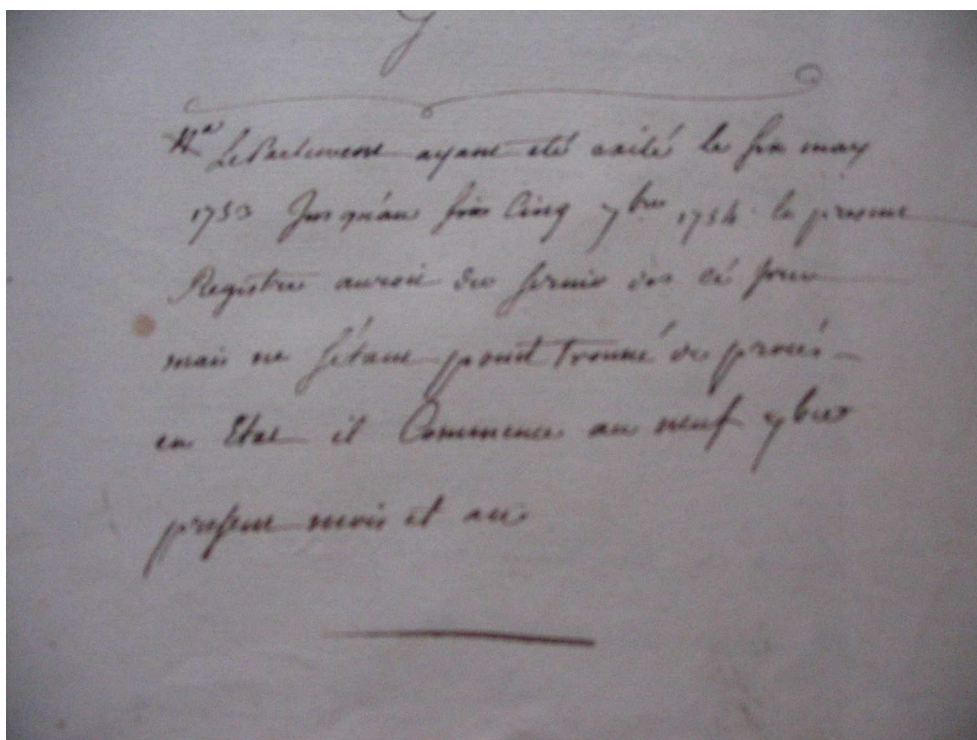 Na Le Parlement ayant eté exilé le six may
1753 Jusqu'au cinq 7bre 1754 le present
Registre auroit du servir des cé jour
mais ne s'étant point trouvé de procés
en Etat il Commence au neuf 7bre
present mois et an